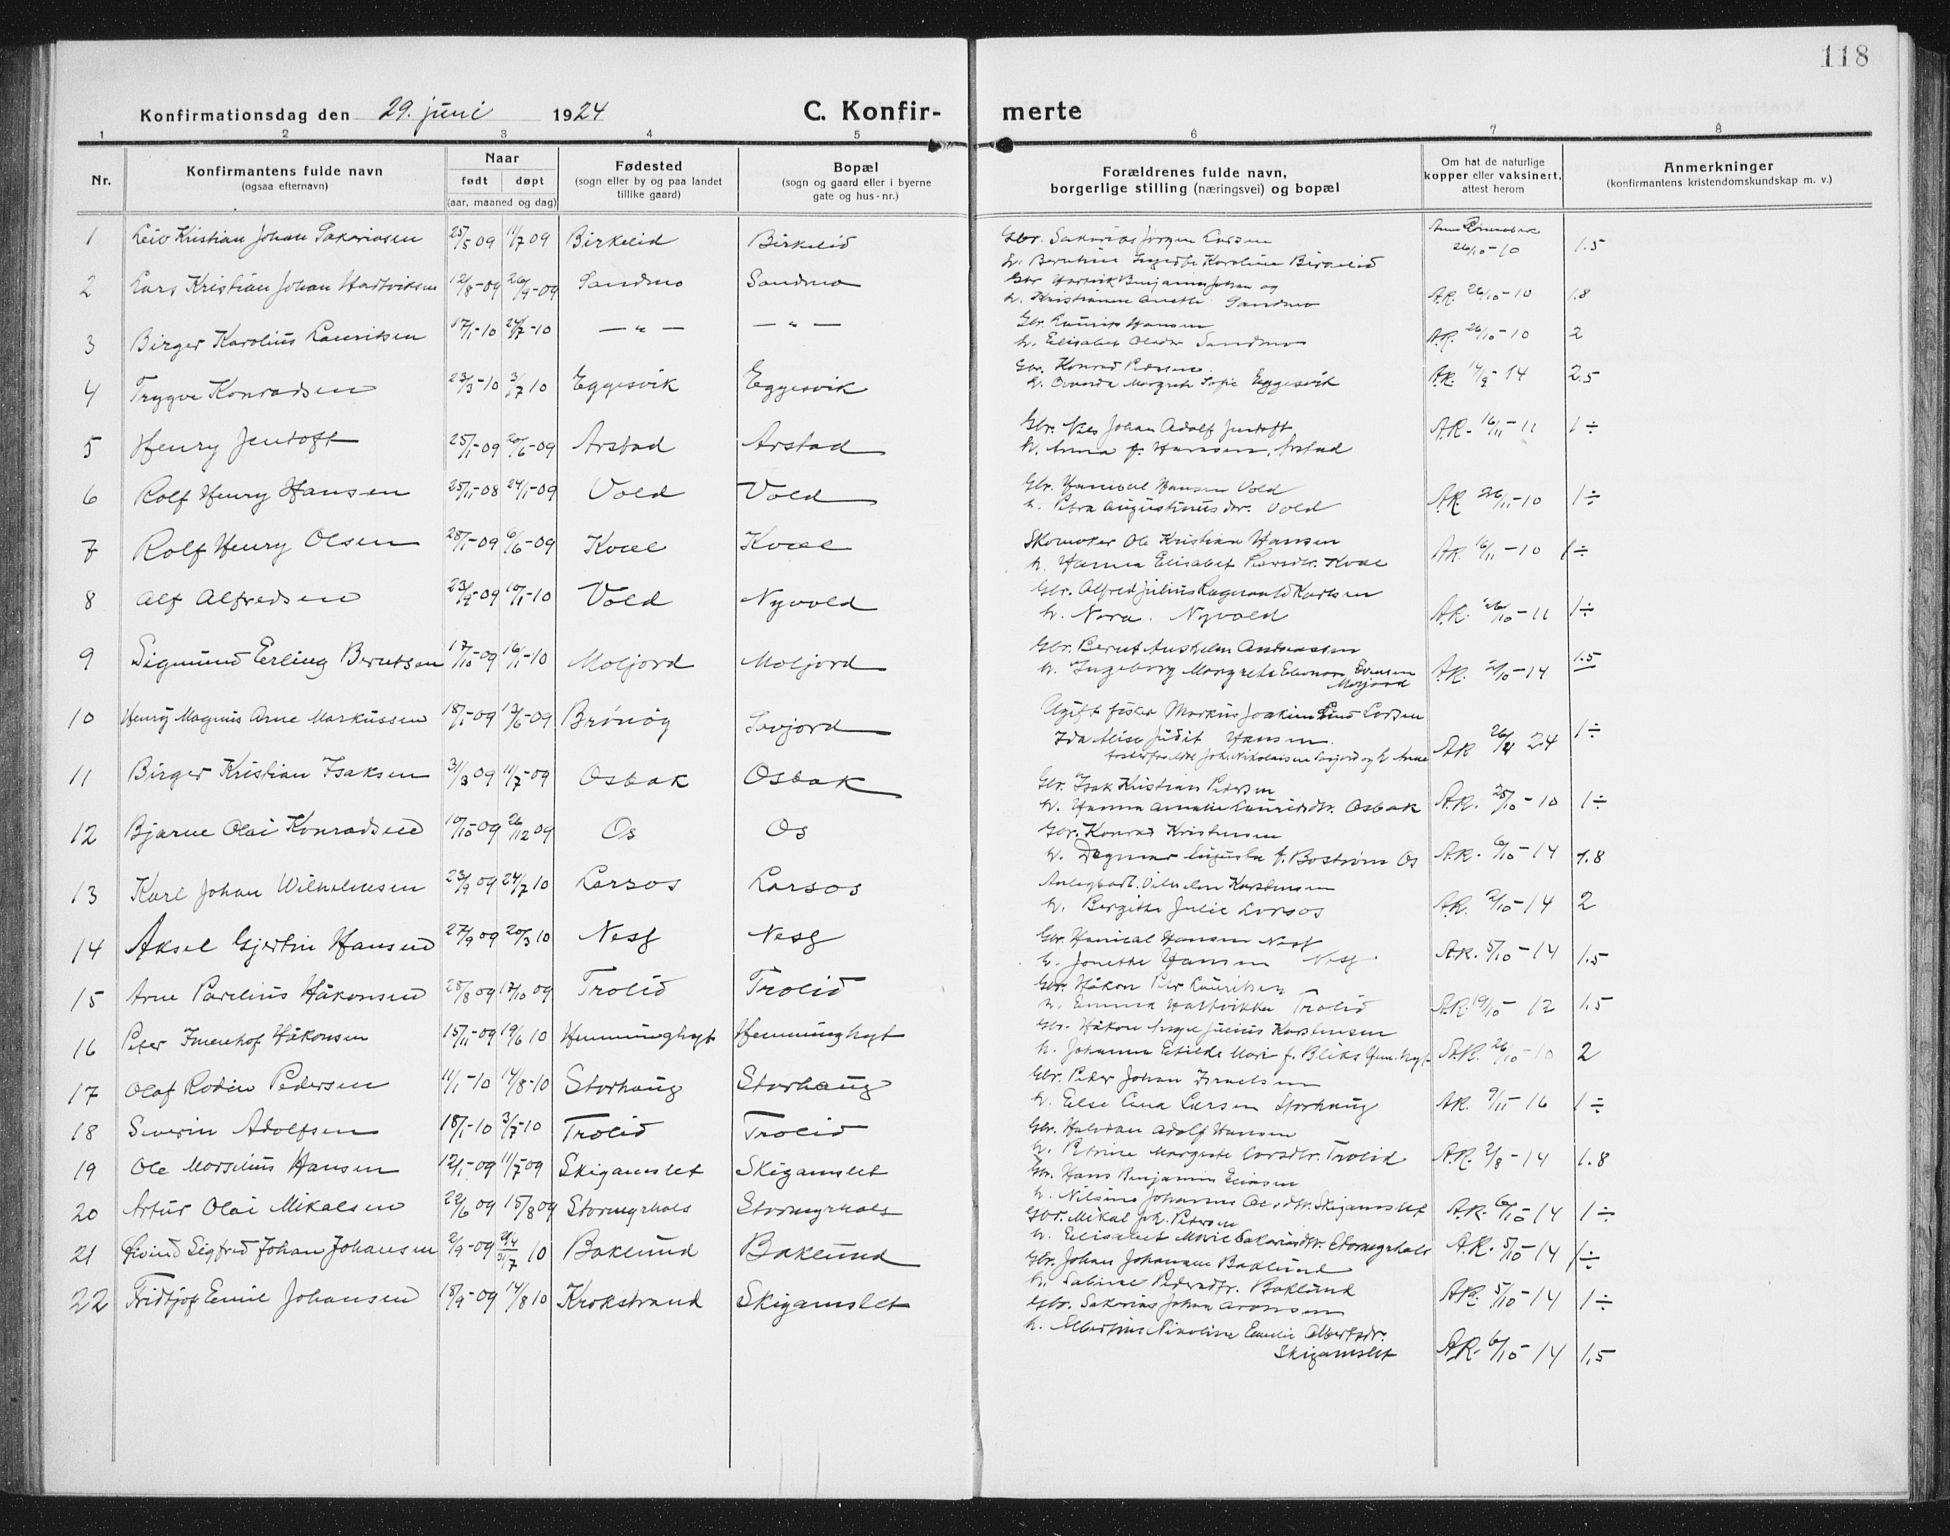 118
Konfirmationsdag den 29. juni 1924 C. Konfirmerte
1 2 3 4 5 6 7 8
Nr. Konfirmantens fulde navn (ogsaa efternavn) Naar født døpt (aar, maaned og dag) Fødested (sogn eller by og paa landet tillike gaard) Bopæl (sogn og gaard eller i byerne gate og hus-nr.) Forældrenes fulde navn, borgerlige stilling (næringsvei) og bopæl Om hat de naturlige kopper eller vaksinert, attest herom Anmerkninger (konfirmantens kristendomskundskap m. v.)
1 Leiv Kristian Johan Sakariasen 25/5 09 11/7 09 Birkelid Birkelid Gbr. Sakarias Jørgen Larsen 26/10-10 1.5
h. Karoline Birkelid
2 Lars Kristian Johan Hartviksen 12/8-09 26/9-09 Sandmo Sandmo Gbr. Hartvik Benjamin Johan og A.R. 26/10-10 1.8
h. Kristianna Anette Sandmo
3 Birger Karolius Lauritsen 17/1-10 24/7-10 — " — — " — Gbr. Laurits Hansen A.R. 26/10-10 2
h. Elisabet Sandmo
4 Trygve Konradsen 23/3-10 3/7 10 Eggesvik Eggesvik Gbr. Konrad A.R. 14/9-14 2.5
h. Margrete Sofie Eggesvik
5 Henry Jentoft 25/1-09 20/6-09 Arstad Arstad Gbr. Johan Adolf Jentoft A.R. 16/11-11 1÷
h. Anna f. Hansen, Arstad
6 Rolf Henry Hansen 25/11-08 24/1-09 Vold Vold Gbr. Hansen Vold A.R. 26/11-10 1÷
h. Petra Augustinusdtr. Vold
7 Rolf Henry Olsen 28/1-09 6/6-09 Kvæl Kvæl Skomaker Ole Kristian Hansen A.R. 16/11-10 1÷
h. Hanna Elisabet Larsdtr. Kvæl
8 Alf Alfredsen 23/9-09 10/1-10 Vold Nyvold Gbr. Alfred Julius Ragnvald Karlsen A.R. 26/10-11 1÷
h. Nora. Nyvold
9 Sigmund Erling Berntsen 17/10-09 16/1-10 Moljord Moljord Gbr. Bernt Anshelm Andreassen A.R. 2/10-14 1.5
h. Ingeborg Margrete Eleonora Evensen
Moljord
10 Henry Magnus Arne Markussen 18/1-09 13/6-09 Brønøy Sevjord Ugift fisker Markus Joakim Lind Larsen AR 24 1÷
Ida Alise Judit Hansen.
11 Birger Kristian Isaksen 31/3 09 11/7-09 Osbak Osbak Gbr. Isak Kristian Petersen A.R. 25/10-10 1÷
h. Hanna Amalie Lauritsdtr. Osbak
12 Bjarne Olai Konradsen 10/10-09 26/12 09 Os Os Gbr. Konrad Kristensen A.R. 6/10-14 1.8
h. Dagmar Augusta f. Bostrøm Os
13 Karl Johan Wilhelmsen 23/9 09 24/7 10 Larsos Larsos Vilhelm Karstensen A.R. 2/10-14 2
h. Bergitte Julie Larsos
14 Aksel Gjertin Hansen 27/9 09 20/3 10 Nesf Nesf Gbr. Hansen Nesf A.R. 5/10-14 1.5
h. Jonette Hansen Nesf
15 Arne Parelius Håkonsen 28/8 09 17/10 09 Trolid Trolid Gbr. Håkon Peter Lauritsen A.R. 19/10-12 1.5
h. Emma Hartvikka Trolid
16 Peter Håkonsen 15/11-09 19/6 10 Hemminghyt Hemminghyt Gbr. Håkon Julius Karstensen A.R. 26/10-10 2
h. Johanna Etilde Mari f. Bliks Hem.hyt
17 Olaf Rodin Pedersen 11/1-10 14/8-10 Storhaug Storhaug Gbr. Peder Johan Israelsen A.R. 9/11-16 1÷
h. Else Ana Larsen Storhaug
18 Severin Adolfsen 18/1-10 3/7-10 Trolid Trolid Gbr. Halvdan Adolf Hansen A.R. 2/8-14 1.8
h. Petrine Margrete Larsdtr. Trolid
19 Ole Morselius Hansen 12/1-09 11/7 09 Skigamslet Skigamslet Gbr. Hans Benjamin A.R. 6/10-14 1÷
h. Nilsine Johanna Skigamslet
20 Artur Olai Mikalsen 22/6 09 15/8 09 Stormyrhals Stormyrhals Gbr. Mikal Joh. Petersen A.R. 5/10-14 1÷
h. Elisabet Marie Sakariasdtr. Stormyrhals
21 Øivind Sigfred Johan Johansen 2/9-09 31/7 10 Baklund Baklund Gbr. Johan Johansen Baklund A.R. 5/10-14 1÷
h. Sabine Pedersdtr. Baklund
22 Fridtjof Emil Johansen 18/9-09 14/8 10 Krokstrand Skigamslet Gbr. Sakarias Johan Aronsen A.R. 6/10-14 1.5
h. Albertine Nikoline Emelie Albertsdr.
Skigamslet